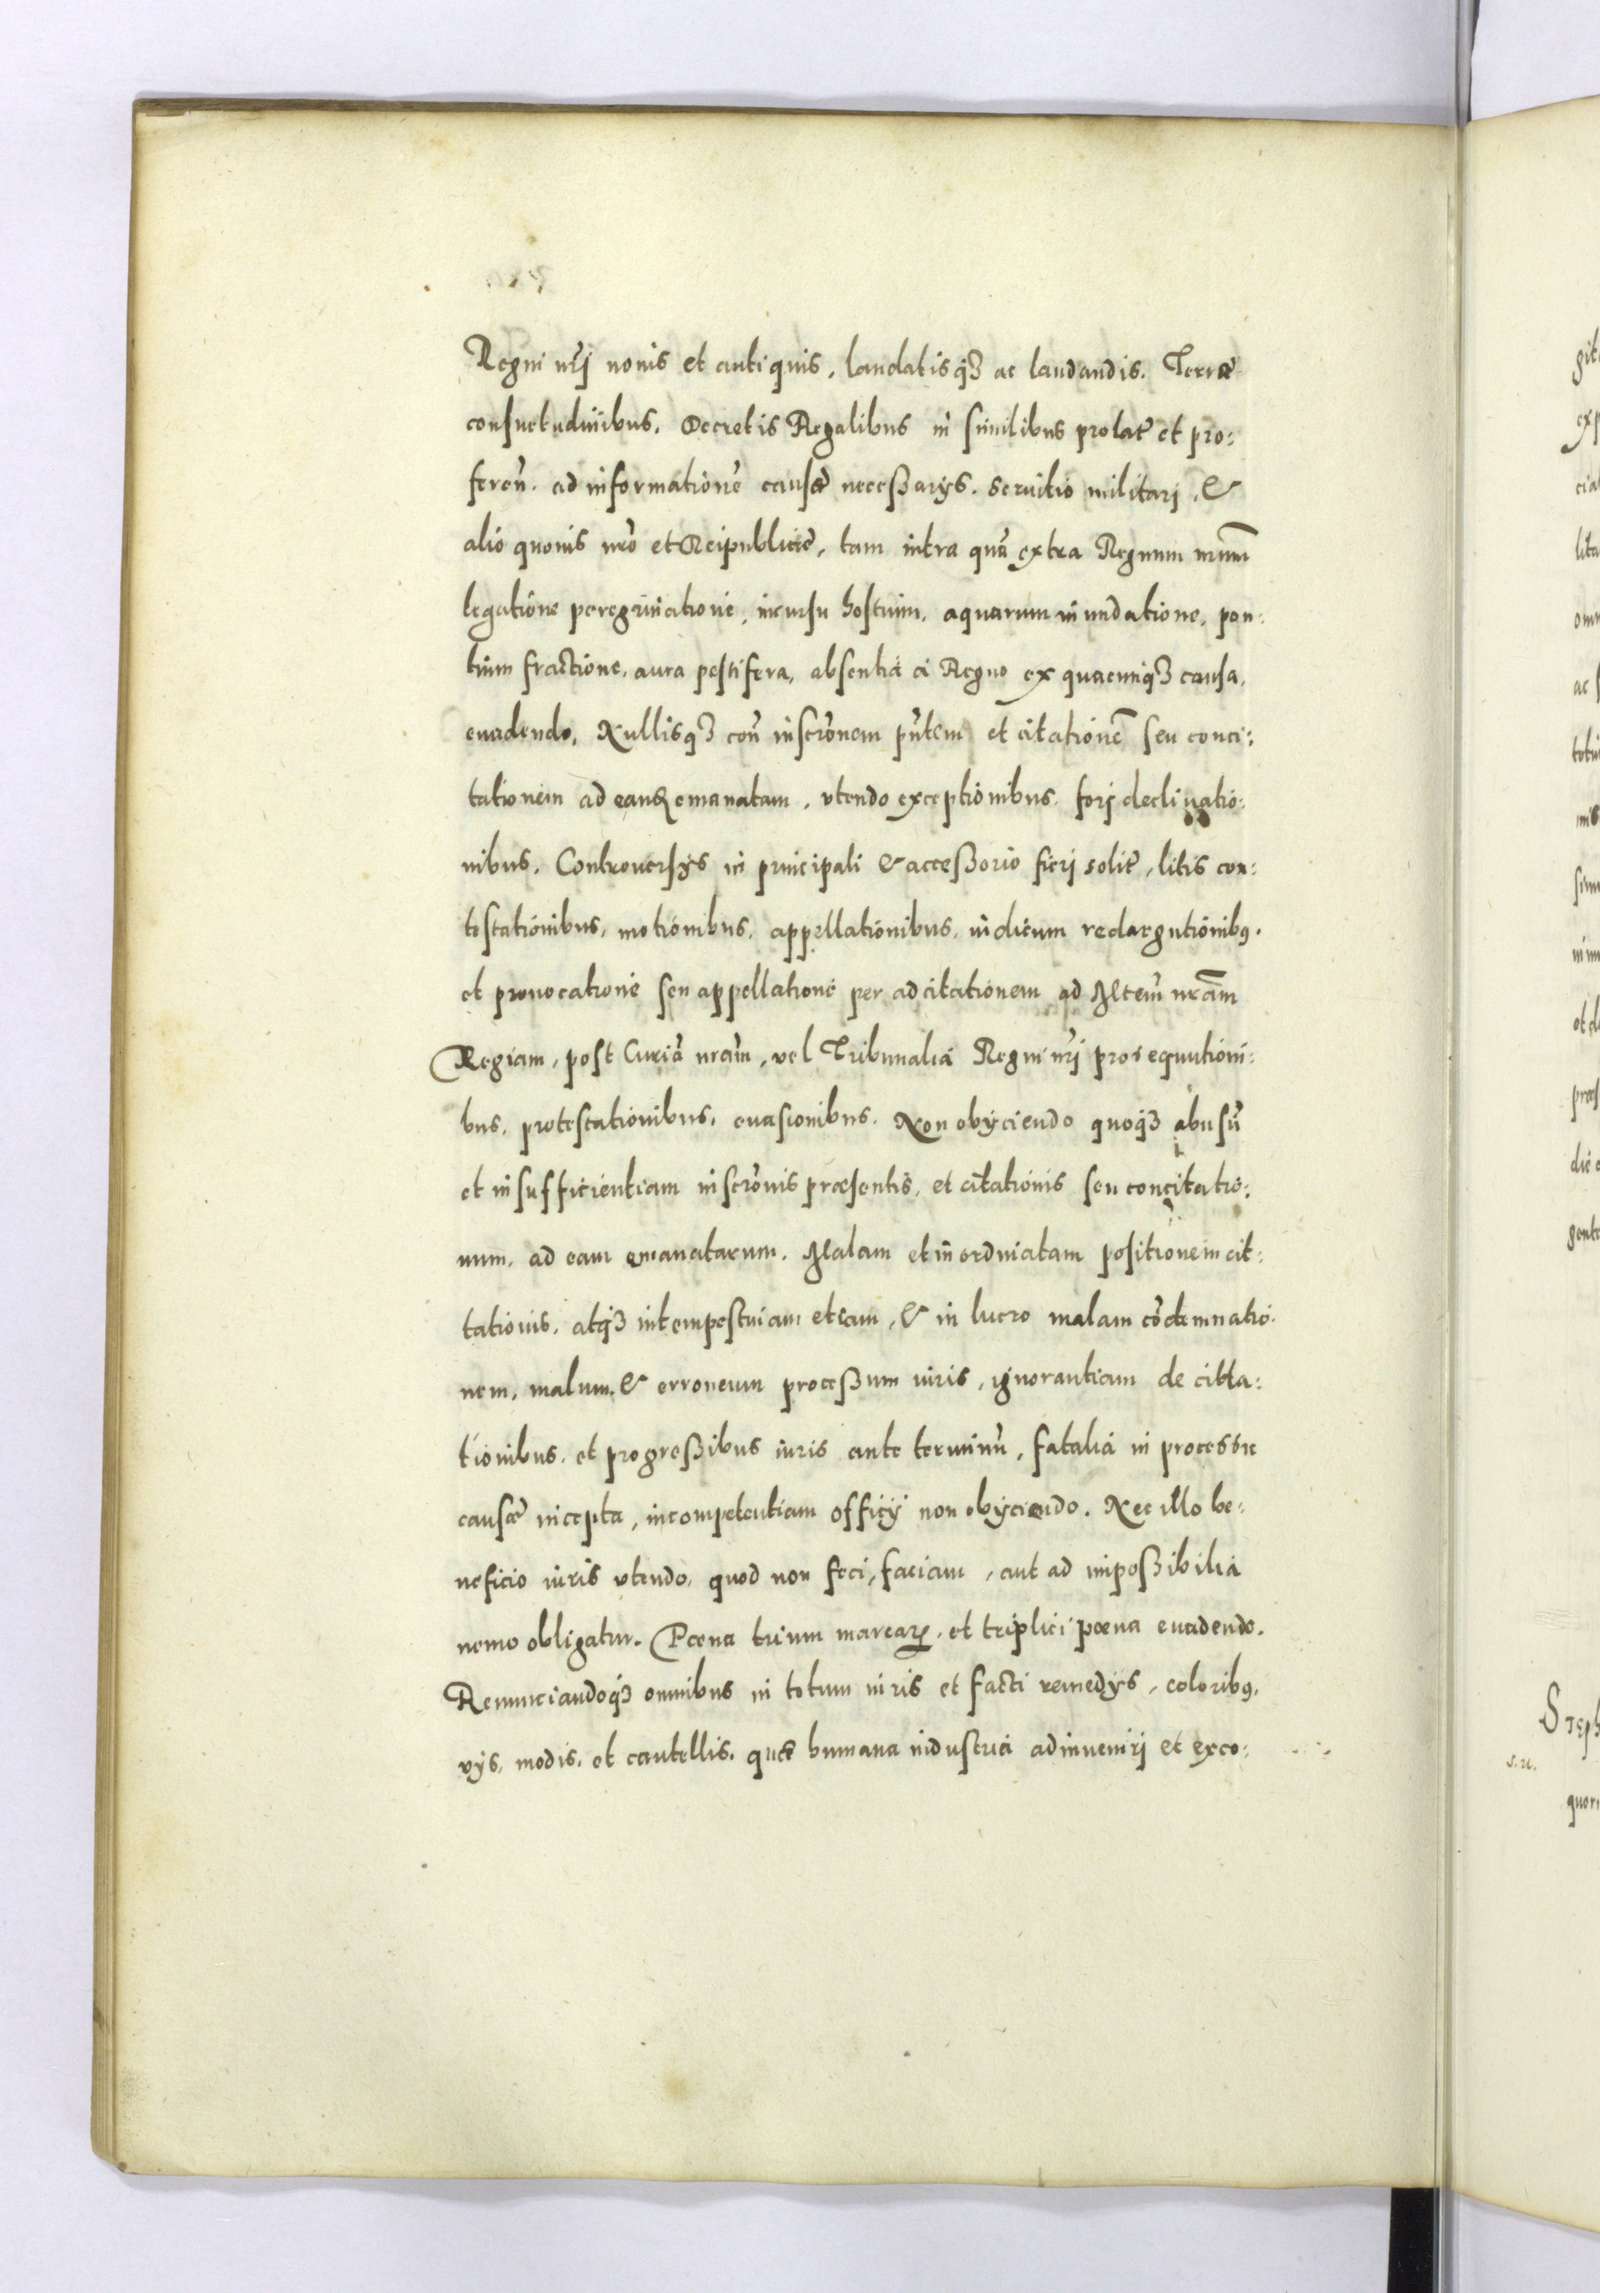 Regni nr̃j nouis et antiquis, laudatisqꝫ ac laudandis. Terræ
consuetudinibus, Decretis Regalibus in similibus prolatꝭ et pro:
feren̄. ad informationē causæ neceßarijs. seruitio militarj, &
alio quouis nr̃o et Reipublicæ, tam intra quā extra Regnum nr̃um
legatione peregrinatione, incursu hostium, aquarum inundatione, pon:
tium fractione, aura pestifera, absentia à Regno ex quacunqꝫ causa,
euadendo, Nullisqꝫ con̄ inscr̄onem pn̄tem et citationē seu conci:
tationem ad eandꝫ emanatam, vtendo exceptionibus, forj declinatio:
nibus, Controuersijs in principali & acceßorio fierj solitꝭ, litis con:
testationibus, motionibus, appellationibus, iudicum redargutionibꝰ,
et prouocatione seu appellatione per adcitationem ad Mtem̄ nr̃am
Regiam, post Curiā nr̃am, vel Tribunalia Regni nr̃j prosequutioni:
bus, protestationibus, euasionibus. Non obijciendo quoqꝫ abusū
et insufficientiam inscr̄onis præsentis, et citationis seu concitatio:
num, ad eam emanatarum. Malam et inordinatam positionem cit:
tationis, atqꝫ intempestiuam etiam, & in lucro malam cōdemnatio:
nem, malum & erroneum proceßum iuris, ignorantiam de citta:
tionibus, et progreßibus iuris ante terminū, fatalia in processu
causæ incepta, incompetentiam officij non obijciendo. Nec illo be:
neficio iuris vtendo, quod non feci, faciam, aut ad impoßibilia
nemo obligatur. Pœna trium marcarꝝ, et triplici pœna euadendo.
Renunciandoqꝫ omnibus in totum iuris et facti remedijs, coloribꝰ,
vijs, modis, et cautellis, quæ humana industria adinuenirj et exco: